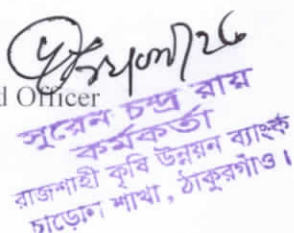 d Officer
সুরেন চন্দ্র রায়
কর্মকর্তা
রাজশাহী কৃষি উন্নয়ন ব্যাংক
চাড়োল শাখা, ঠাকুরগাঁও।